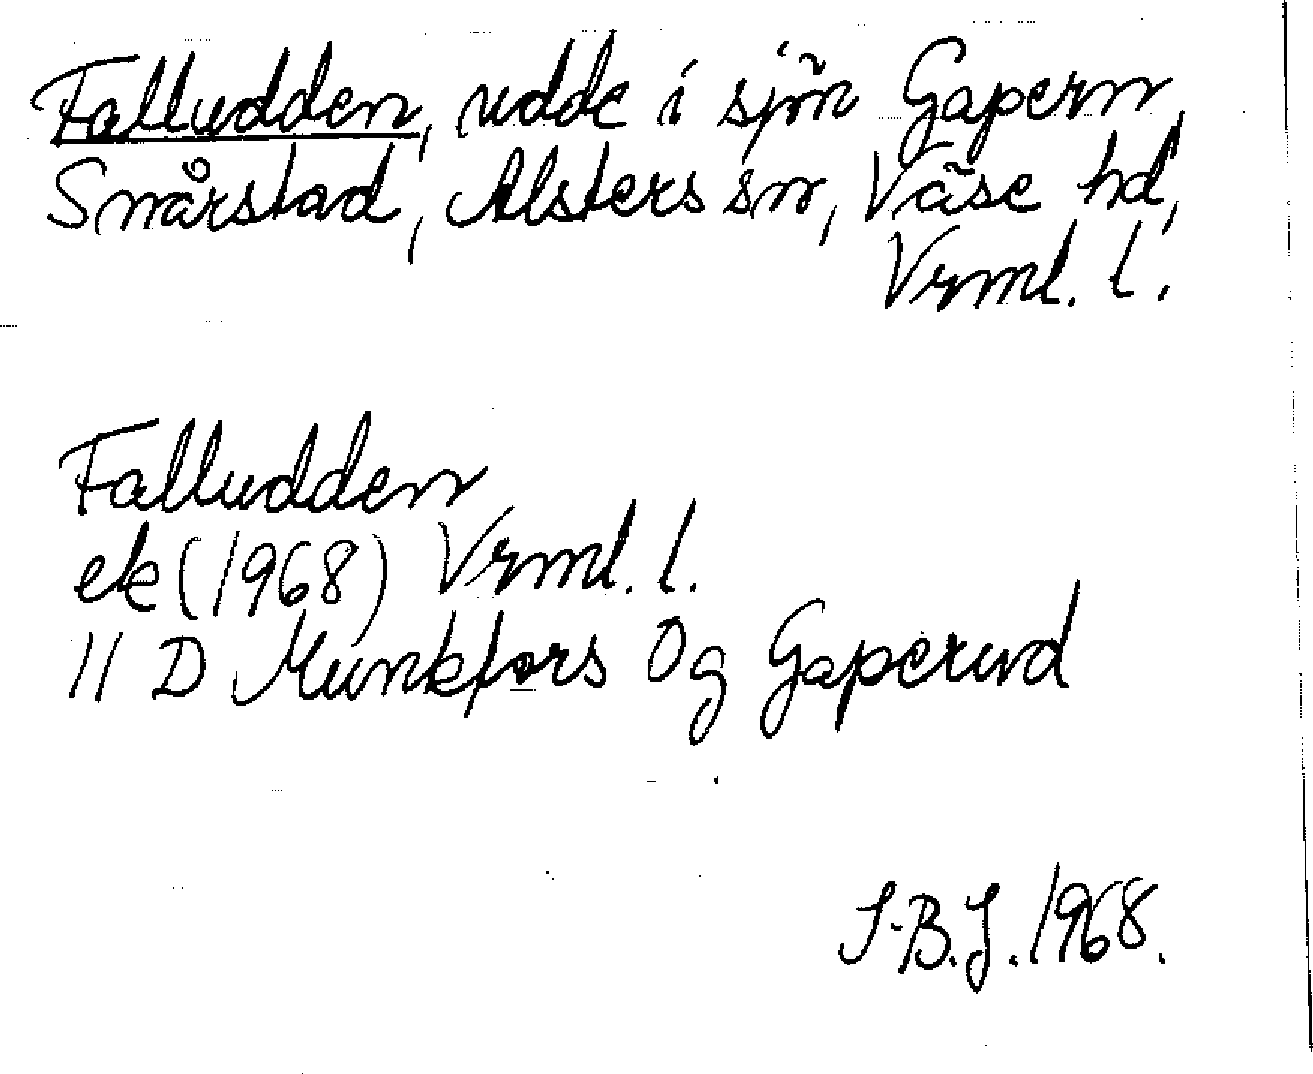 Falludden, udde i sjön Gapern,
Snårstad, Alsters sn, Väse hd,
Vrml. l.
Falludden
ek (1968) Vrml. l.
11 D Munkfors 0g Gaperud
I-B.J. 1968.